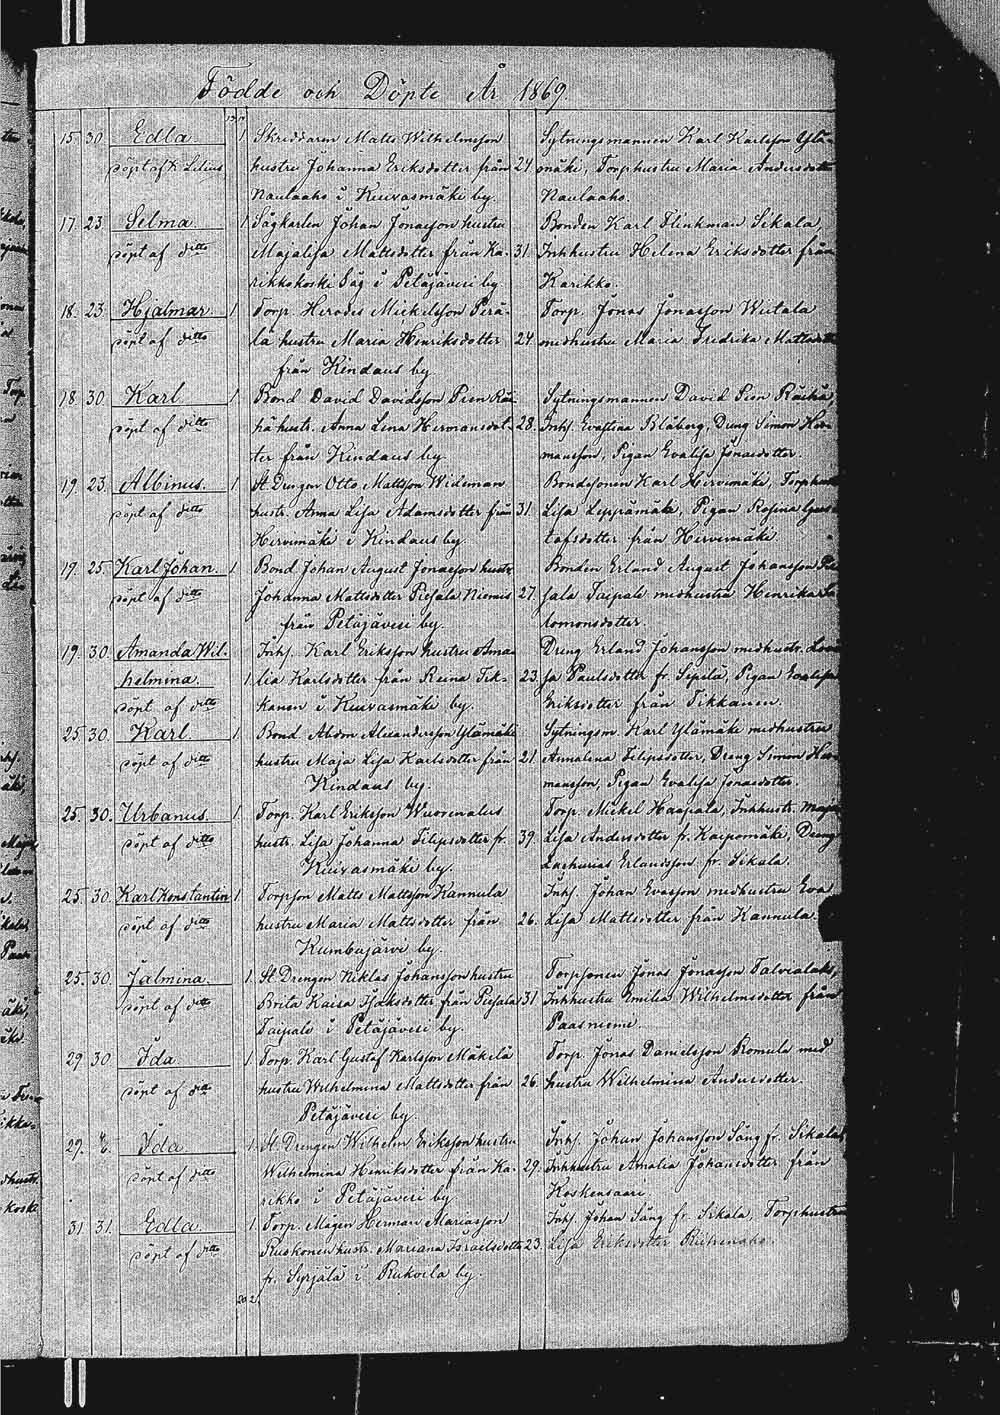 Födde och Döpte År 1869.
13. 17.
15. 30. Edla 1 Skräddaren Matts Wilhelmsson Sytningsmannen Karl Karlsson Ylä-
döpt af K Lilius hustru Johanna Eriksdotter från 24 omäki, Torphustru Maria Andersdotter
Naulaaho i Kuivasmäki by. Naulaaho.
17. 23 Selma. 1 Sågkarlen Johan Jonasson hustru Bonden Karl Flinkman Sikala
döpt af ditto Majalisa Mattsdotter från Ka- 31. Inhhustru Helena Eriksdotter från
rikkokoski Såg i Petäjävesi by Karikko.
18. 23. Hjalmar. 1 Torp. Herodes Mickelsson Perä- Torp. Jonas Jonasson Wiitala
döpt af ditto la hustru Maria Henriksdotter 24. medhustru Maria Fredrika Mattsdotter
från Kindaus by
18. 30. Karl 1 Bond David Davidsson Pien Rä- Sytningsmannen David Pien Räihä,
döpt af ditto hä hustr. Anna Lena Hermansdot- 28. Inhs. Evastina Blåberg, Dreng Simon Her-
ter från Kindaus by. mansson, Pigan Evalisa Jonasdotter.
19. 23. Albinus. 1 St Drengen Otto Mattsson Wideman Bondesonen Karl Hirvimäki, Torphustr
döpt af ditto hustr. Anna Lisa Adamsdotter från 31. Lisa Leppämäki, Pigan Rosina Gus-
Hirvimäki i Kindaus by. tafsdotter från Hirvimäki
19. 25. Karl Johan. 1 Bond Johan August Jonasson hustr Bonden Erland August Johansson Pie
döpt af ditto Johanna Mattsdotter Piesala Niemis 27. sala Taipale medhustru Henrika Sa
från Petäjävesi by. lomonsdotter.
19. 30. Amanda Wil- Inhs. Karl Eriksson hustru Ama- Dreng Erland Johansson medhustr. Lovi
helmina. 1 lia Karlsdotter från Reina Tik- 23. sa Paulsdotter fr. Sipilä, Pigan Evalisa
döpt af ditto kanen i Kuivasmäki by. Eriksdotter från Tikkanen.
25. 30. Karl 1 Bond. Abdon Alexandersson Ylämäki Sytningsm. Karl Ylämäki medhustru
döpt af ditto hustru Maja Lisa Karlsdotter från 21 Annalena Filipsdotter, Dreng Simon Her-
Kindaus by. mansson, Pigan Evalisa Jonasdotter.
25. 30. Urbanus. 1 Torp. Karl Eriksson Wuorenalus Torp. Mickel Haapala, Inhhustr. Maja
döpt af ditto hustr. Lisa Johanna Filipsdotter fr. 39. Lisa Andersdotter fr. Kaipomäki, Dreng
Kuivasmäki by. Zacharias Erlandsson fr. Sikala.
25. 30. Karl Konstantin 1. Torpson Matts Mattsson Kannula Inhs. Johan Evasson medhustru Eva
döpt af ditto hustru Maria Mattsdotter från 26. Lisa Mattsdotter från Kannula.
Kumbujärvi by.
25. 30. Jalmina. 1. St Drengen Niklas Johansson hustru Torpsonen Jonas Jonasson Talvialaks,
döpt af ditto Brita Kaisa Isaksdotter från Piesala 31 Inhhustru Emilia Wilhelmsdotter från
Taipale i Petäjävesi by. Paasniemi.
29. 30 Ida 1. Torp. Karl Gustaf Karlsson Mäkelä Torp. Jonas Danielsson Romula med
döpt af ditto hustru Wilhelmina Mattsdotter från 26. hustru Wilhelmina Andersdotter.
Petäjävesi by.
29. Ida. 1. St. Drengen Wilhelm Eriksson hustru Inhs. Johan Johansson Sång fr. Sikala,
döpt af ditto Wilhelmina Henriksdotter från Ka- 29. Inhhustru Amalia Johansdotter från
rikko i Petäjävesi by Koskensaari
31. 31. Edla. 1. Torp. Mågen Herman Mariasson Inhs. Johan Sång fr. Sikala, Torphustru
döpt af ditto Ruskonen hustr. Mariana Israelsdotter 23. Lisa Eriksdotter
fr. Syrjälä i Rukoila by.
20. 21.